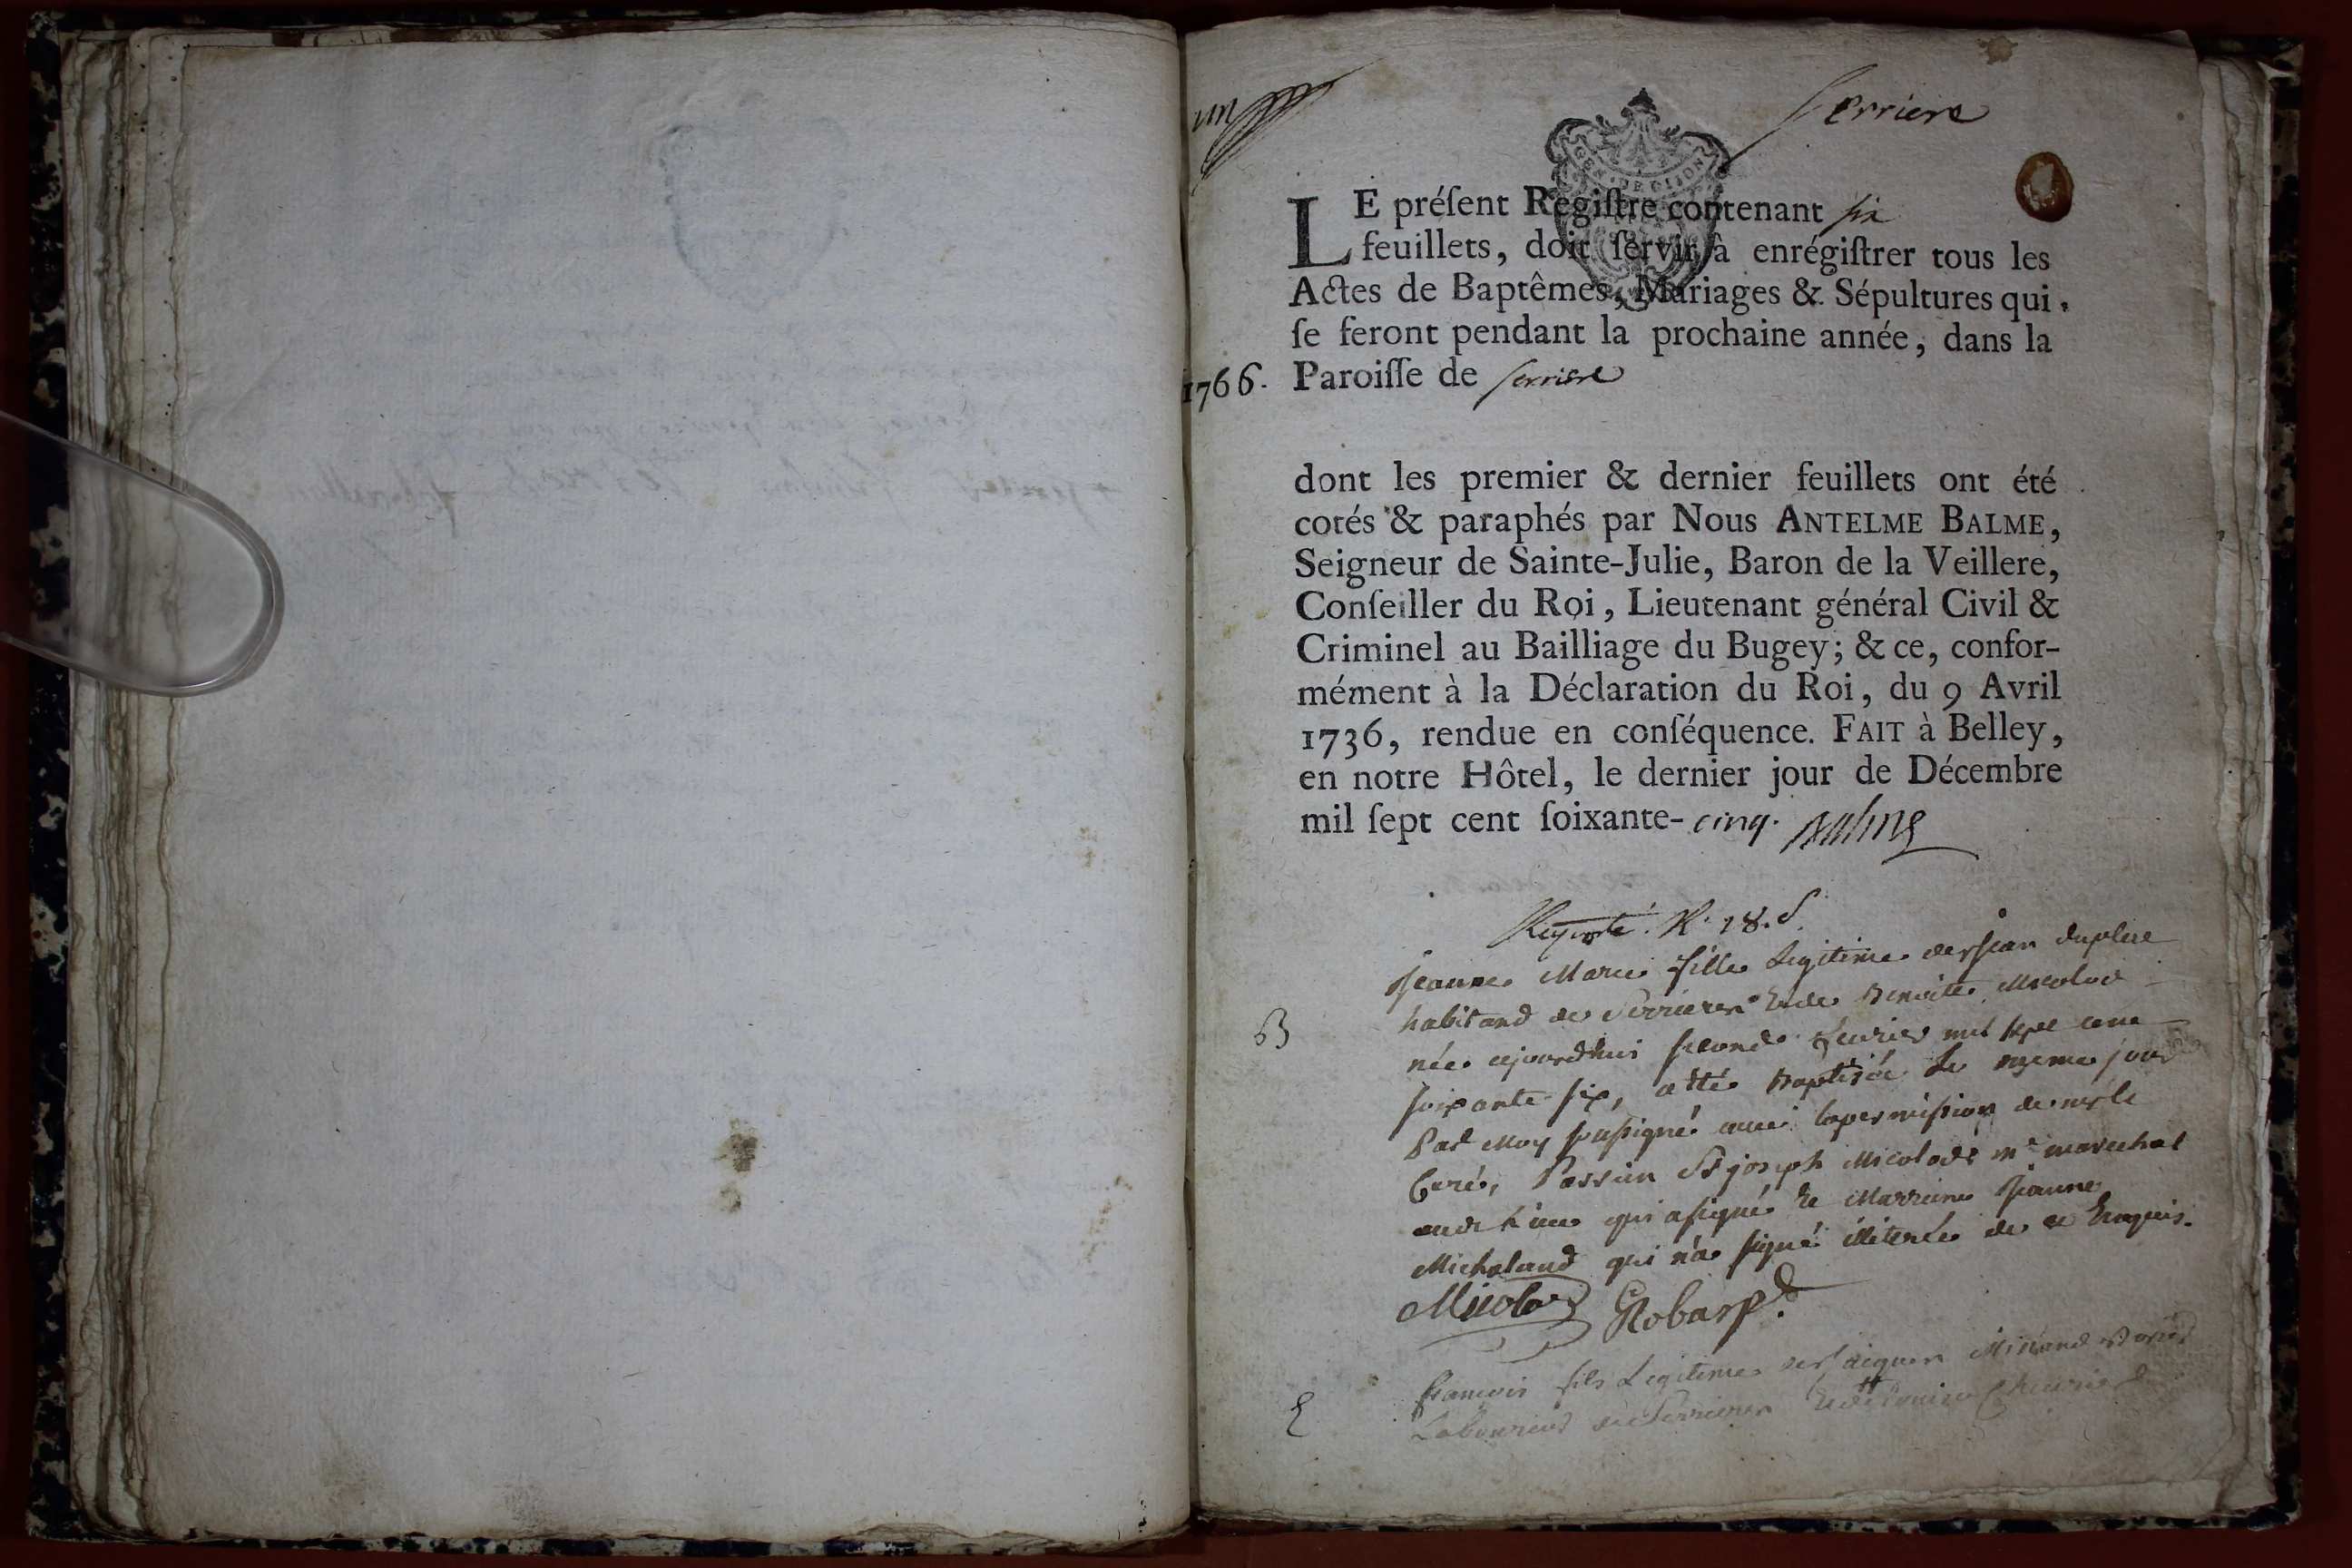 un
Serriere
GEN · DE DIJON
LE préſent Regiſtre contenant six
feuillets, doit ſervir à enrégiſtrer tous les
Actes de Baptêmes, Mariages & Sépultures qui
ſe feront pendant la prochaine année, dans la
1766. Paroiſſe de Serriere
dont les premier & dernier feuillets ont été
cotés & paraphés par Nous ANTELME BALME,
Seigneur de Sainte-Julie, Baron de la Veillere,
Conſeiller du Roi, Lieutenant général Civil &
Criminel au Bailliage du Bugey; & ce, confor-
mément à la Déclaration du Roi, du 9 Avril
1736, rendue en conſéquence. FAIT à Belley,
en notre Hôtel, le dernier jour de Décembre
mil ſept cent ſoixante-cinq. Balme
R. 18. S
Jeanne Marie fille Legitime de Jean
habitand de Serrieres et de Benoite Micolod
B
née ajourdhuis second fevrier mil sept cent
soixante six, a été Baptisée le meme jour
Par Moy soussigné avec la permission de mr le
Curé, Parrain Sr joseph Micolod me marechal
qui a signé et Marraine Jeanne
Michaland qui n'a signé illiterée de ce Enquis.
Micolod Robas
françois fils Legitime de Jaques
Laboureur de Serrieres et de